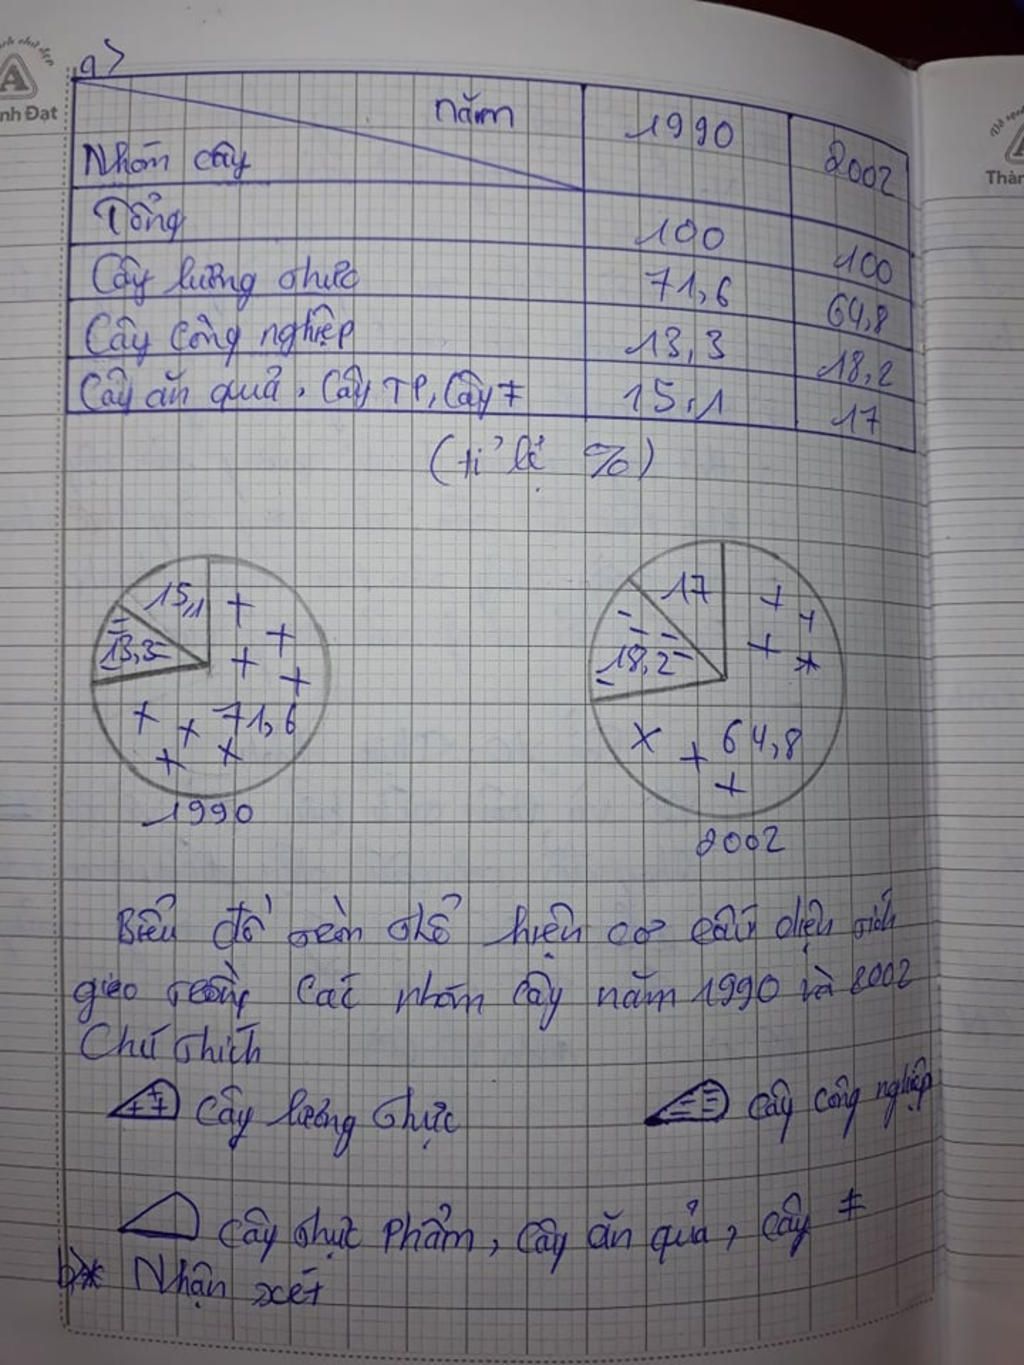 nh Đạt
Thàn
a>
năm 1990 2002
Nhóm cây
Tổng 100 100
Cây lương thực 71,6 64,8
Cây công nghiệp 13,3 18,2
Cây ăn quả, Cây TP, Cây ≠ 15,1 17
(tỉ lệ %)
15,1
13,3
71,6
1990
17
18,2
64,8
2002
Biểu đồ tròn thể hiện cơ cấu diện tích
gieo trồng các nhóm cây năm 1990 và 2002
Chú thích
Cây lương thực
Cây công nghiệp
Cây thực phẩm, cây ăn quả, cây ≠
b)* Nhận xét